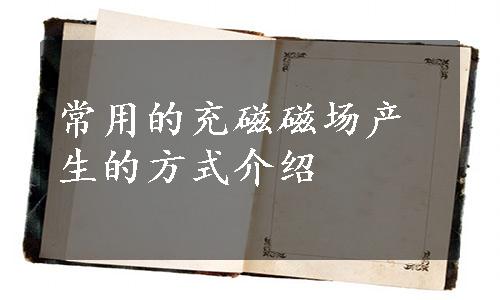 常用的充磁磁场产
生的方式介绍